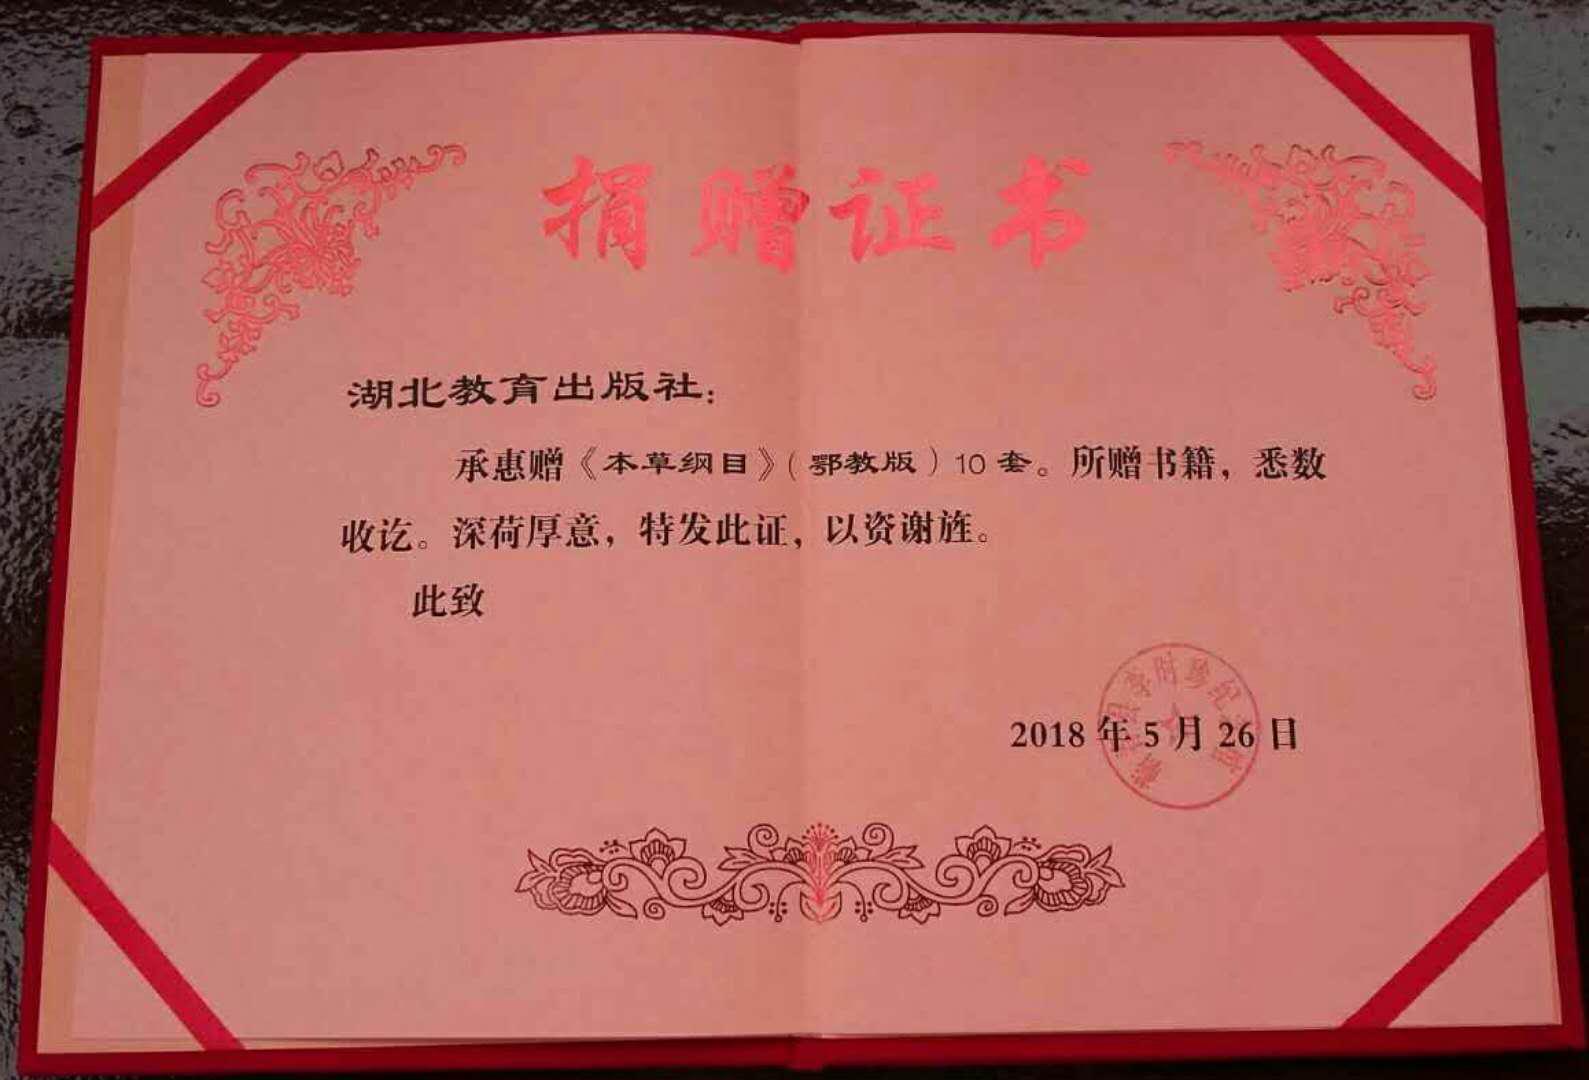 捐赠证书
湖北教育出版社：
承惠赠《本草纲目》（鄂教版）10 套。所赠书籍，悉数
收讫。深荷厚意，特发此证，以资谢旌。
此致
2018 年 5 月 26 日
李时珍纪